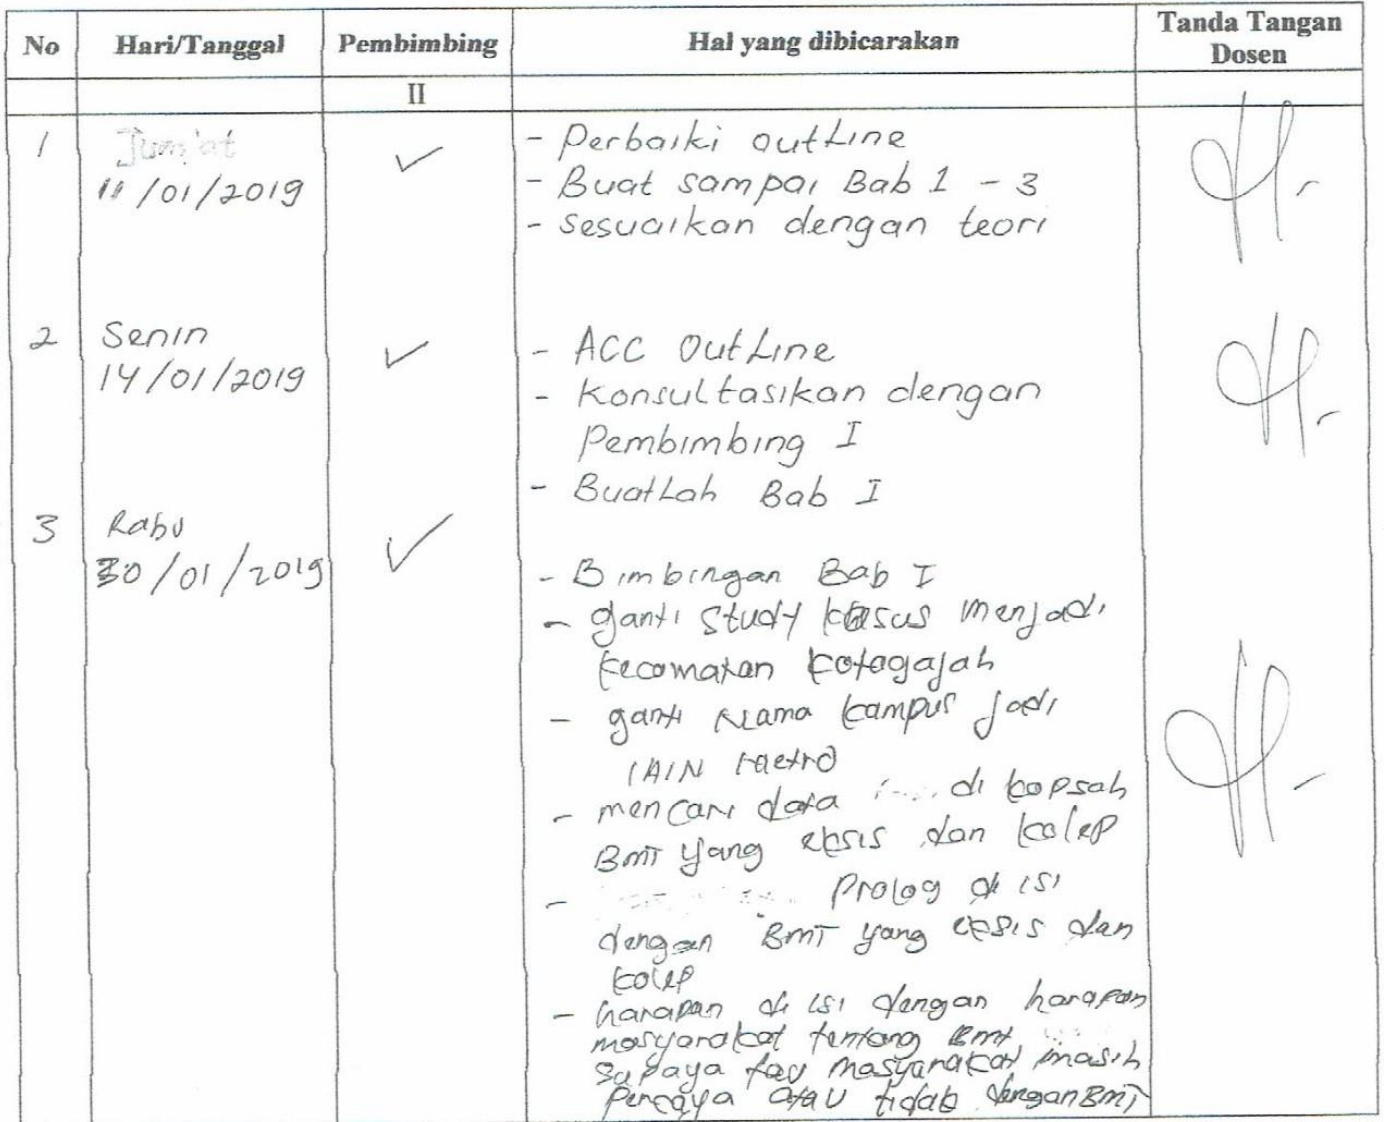 No Hari/Tanggal Pembimbing Hal yang dibicarakan Tanda Tangan Dosen
II
1 Jum'at ✓ - Perbaiki outline
11/01/2019 - Buat sampai Bab 1 - 3
- Sesuaikan dengan teori
2 Senin ✓ - ACC Outline
14/01/2019 - Konsultasikan dengan
Pembimbing I
- Buatlah Bab I
3 Rabu ✓
30/01/2019 - Bimbingan Bab I
- ganti study kasus menjadi
kecamatan kotagajah
- ganti Nama kampus jadi
IAIN Metro
- mencari data di kopsah
BMT yang eksis dan kolep
- Prolog di isi
dengan BMT yang eksis dan
kolep
- harapan di isi dengan harapan
masyarakat tentang BMT
supaya tau masyarakat masih
percaya atau tidak dengan BMT